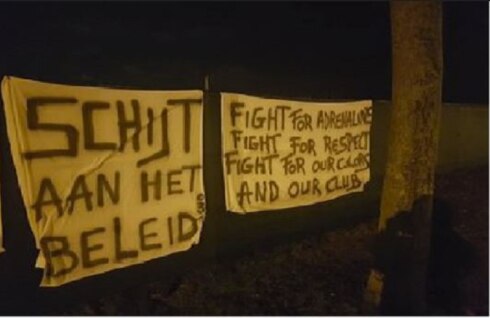 SCHIJT
AAN HET
BELEID
FIGHT FOR ADRENALINE
FIGHT FOR RESPECT
FIGHT FOR OUR COLORS
AND OUR CLUB